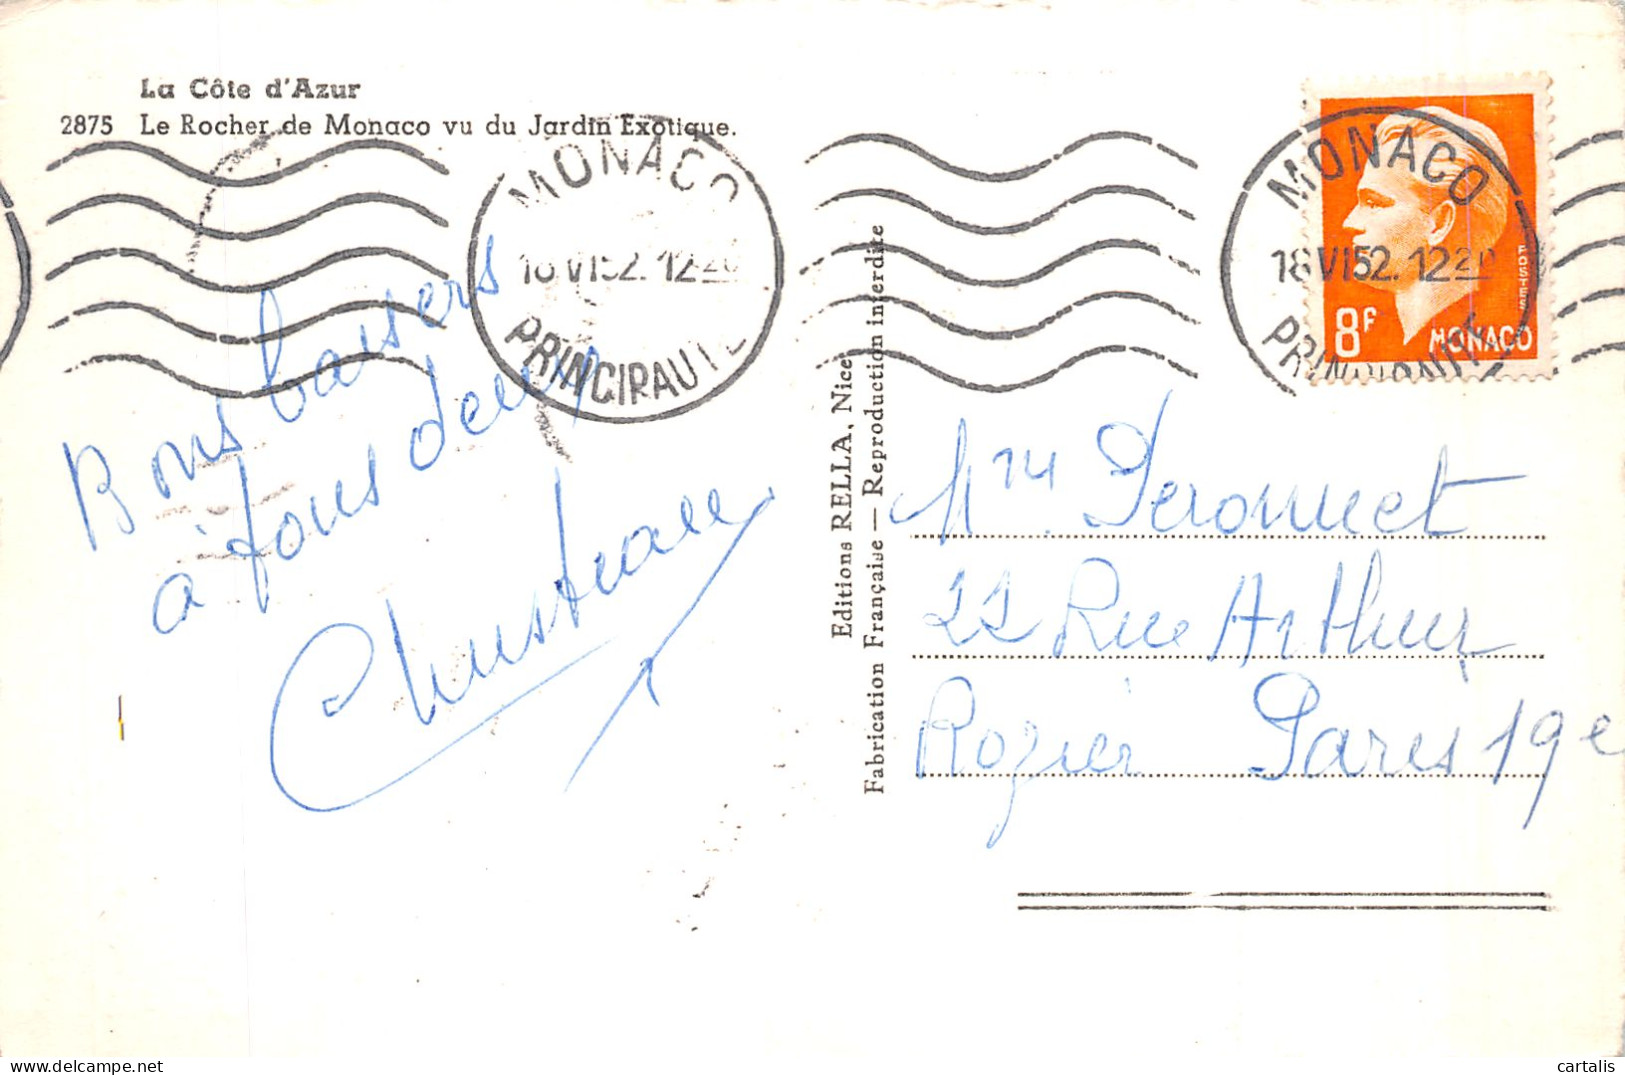 La Côte d'Azur
2875 Le Rocher de Monaco vu du Jardin Exotique.
MONACO
18 VI 52. 12 20
PRINCIPAUTE
MONACO
18 VI 52. 12 20
PRINCIPAUTE
POSTES
8F MONACO
Bons baisers
à tous deux
Christiane
Editions RELLA, Nice
Fabrication Française — Reproduction interdite
22 Rue Arthur
Rozier Paris 19e
cartalis